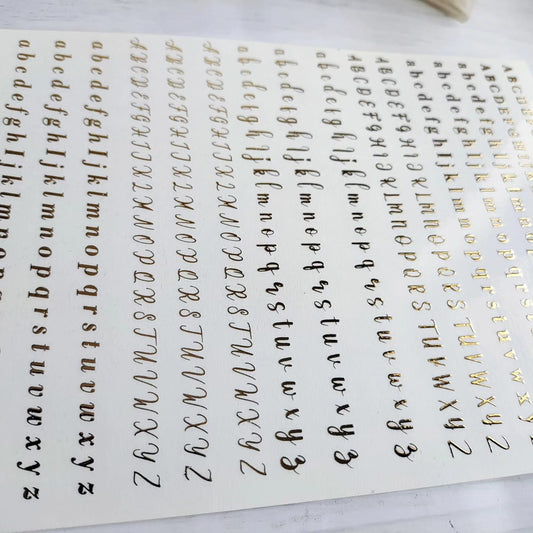 a b c d e f g h I j k l m n o p
a b c d e f g h I j k l m n o p q r s t u v w x y z
a b c d e f g h I j k l m n o p q r s t u v w x y z
A B C D E F G H I J K L M N O P Q R S T U V W X Y Z
A B C D E F G H I J K L M N O P Q R S T U V W X Y Z
A B C D E F G H I J K L M N O P Q R S T U V W X Y Z
a b c d e f g h i j k l m n o p q r s t u v w x y z
a b c d e f g h i j k l m n o p q r s t u v w x y z
a b c d e f g h i j k l m n o p q r s t u v w x y z
A B C D E F G H I J K L M N O P Q R S T U V W X Y Z
A B C D E F G H I J K L M N O P Q R S T U V W X Y Z
a b c d e f g h i j k l m n o p q r s t u v w x y z